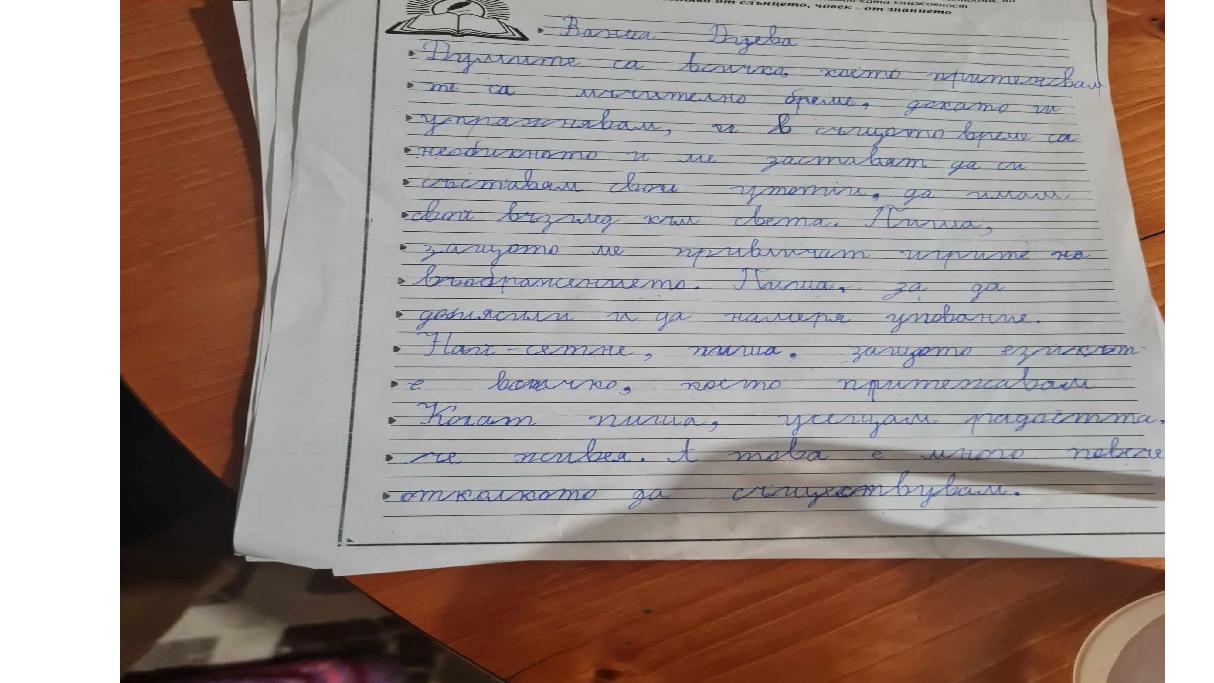 ката книжовност
от слънцето, човек - от знанието
Ваниа Дзева
Думите са всичко, което притежавам
те са мъчително бреме, докато ги
упражнявам, и в същото време са
необикното и ме заставят да си
съставам свои утопии, да имам
свой възглед към света. Пиша,
защото ме привличат игрите на
въображението. Пиша, за да
дообяснили и да намеря упование.
Най-сетне, пиша, защото езикът
е всичко, което притежавам
Когат пиша, усещам радостта,
че живея. А това е много повече
отколкото да съществувам.